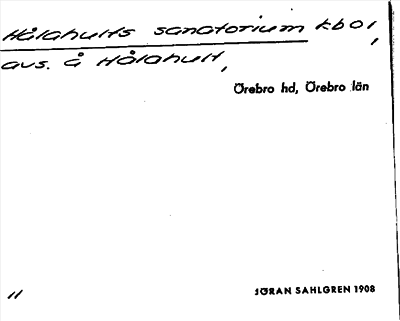 Hålahults sanatorium kbol,
avs. å Hålahult,
Örebro hd, Örebro län
11
JÖRAN SAHLGREN 1908